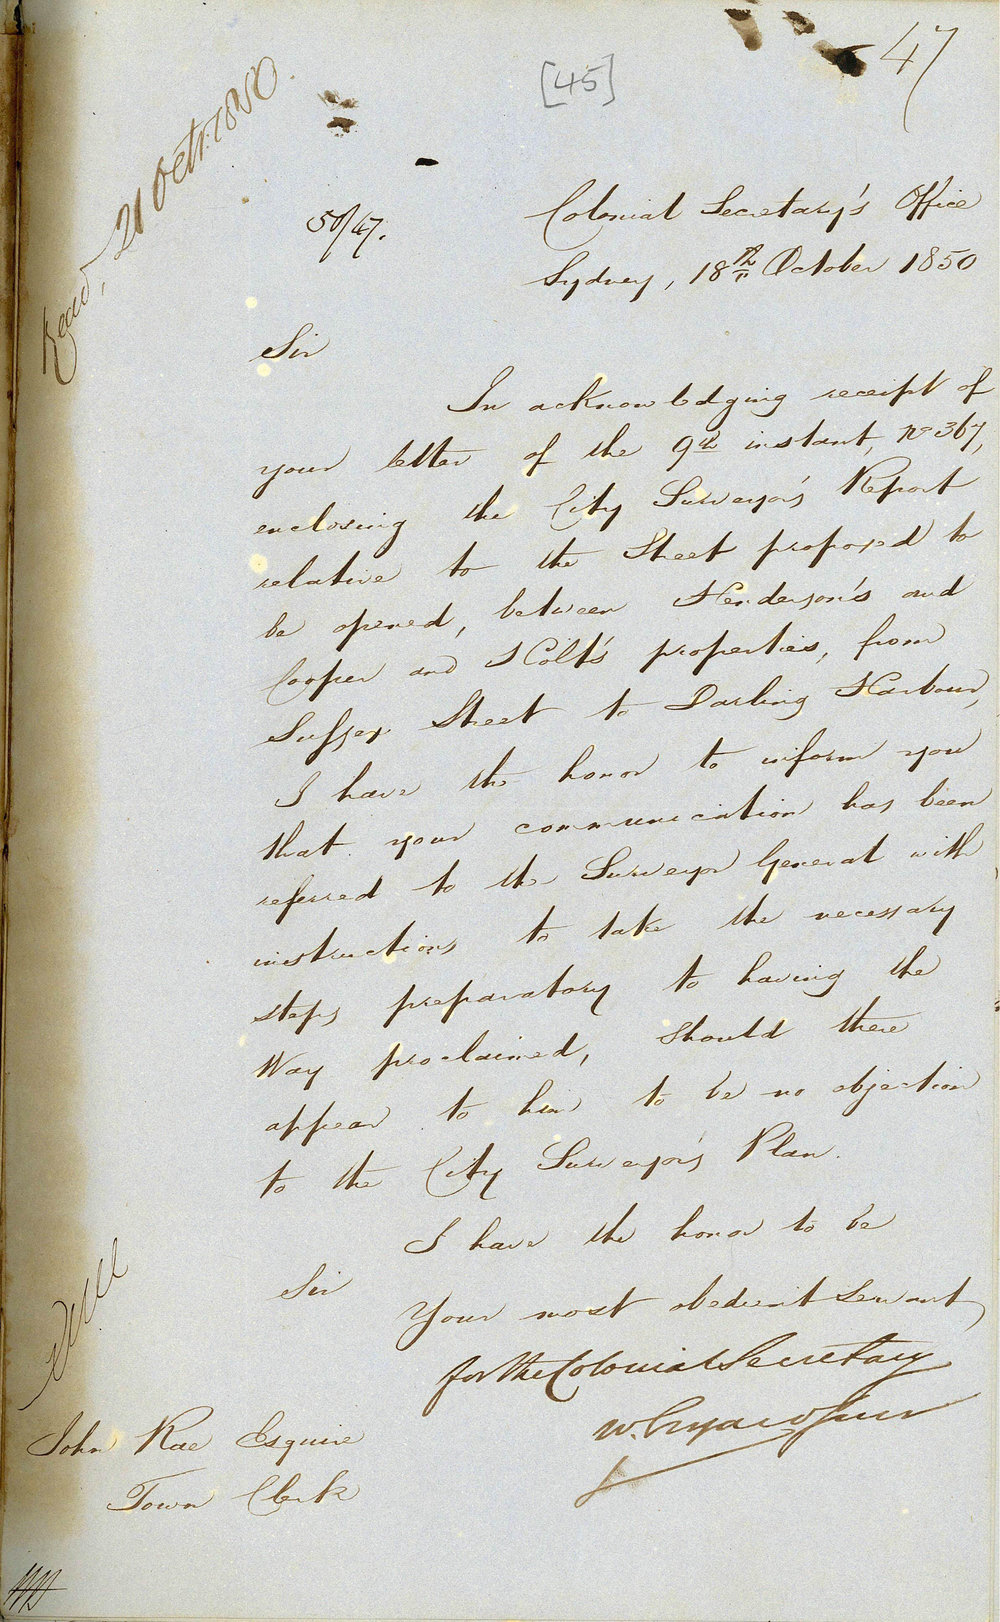 47
[45]
Read, 21 Octr. 1850.
50/47.
Colonial Secretary's Office
Sydney, 18th October 1850
Sir
In acknowledging receipt of
your letter of the 9th instant, No 367,
enclosing the City Surveyor's Report
relative to the Street proposed to
be opened, between Henderson's and
Cooper and Holt's properties, from
Sussex Street to Darling Harbour,
I have the honor to inform you
that your communication has been
referred to the Surveyor General with
instructions to take the necessary
steps preparatory to having the
Way proclaimed, should there
appear to him to be no objection
to the City Surveyor's Plan.
I have the honor to be
Sir
Your most obedient Servant,
for the Colonial Secretary
W. Elyard Junr
John Rae Esquire
Town Clerk